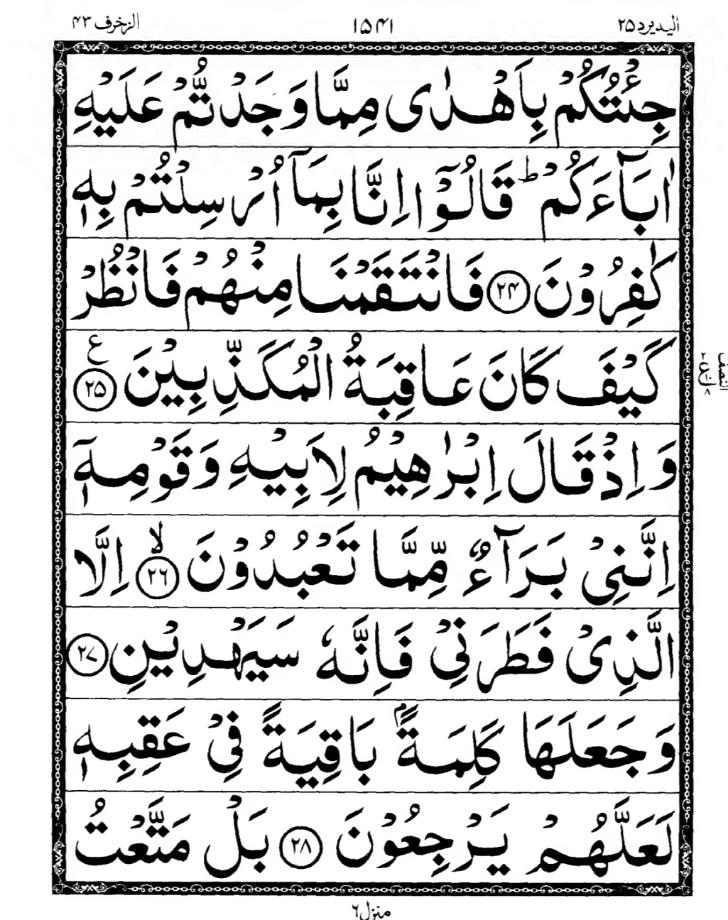 الزخرف ۴۳
۱۵۴۱
الیه یرد ۲۵
جِئْتُكُمْ بِاَهْدٰى مِمَّا وَجَدْتُّمْ عَلَيْهِ
اٰبَآءَكُمْ ؕ قَالُوْۤا اِنَّا بِمَاۤ اُرْسِلْتُمْ بِهٖ
كٰفِرُوْنَ ﴿۲۴﴾ فَانْتَقَمْنَا مِنْهُمْ فَانْظُرْ
كَيْفَ كَانَ عَاقِبَةُ الْمُكَذِّبِيْنَ ﴿۲۵﴾ ع
وَاِذْ قَالَ اِبْرٰهِيْمُ لِاَبِيْهِ وَقَوْمِهٖۤ
اِنَّنِيْ بَرَآءٌ مِّمَّا تَعْبُدُوْنَ ﴿۲۶﴾ ۙ اِلَّا
الَّذِيْ فَطَرَنِيْ فَاِنَّهٗ سَيَهْدِيْنِ ﴿۲۷﴾
وَجَعَلَهَا كَلِمَةًۢ بَاقِيَةً فِيْ عَقِبِهٖ
لَعَلَّهُمْ يَرْجِعُوْنَ ﴿۲۸﴾ بَلْ مَتَّعْتُ
منزل ۶